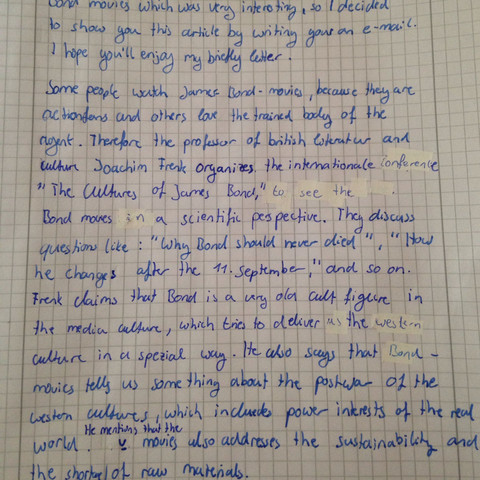 Bond movies which was very interesting, so I decided
to show you this article by writing you an e-mail.
I hope you'll enjoy my briefly letter.
Some people watch James Bond-movies, because they are
actionfans and others love the trained body of the
agent. Therefore the professor of british literatur and
culture Joachim Frenk organizes the internationale Conference
"The Cultures of James Bond," to see the
Bond movies in a scientific perspective. They discuss
question like: "Why Bond should never died", "How
he changes after the 11. September," and so on.
Frenk claims that Bond is a very old cult figure in
the media culture, which tries to deliver us the western
culture in a spezial way. He also says that Bond-
movies tells us something about the postwar of the
western cultures, which includes power interests of the real
world. He mentions that the movies also addresses the sustainability and
the shortage of raw materials.